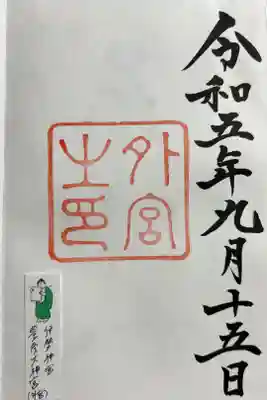 令和五年九月十五日
外宮
之印
伊勢神宮
豊受大神宮